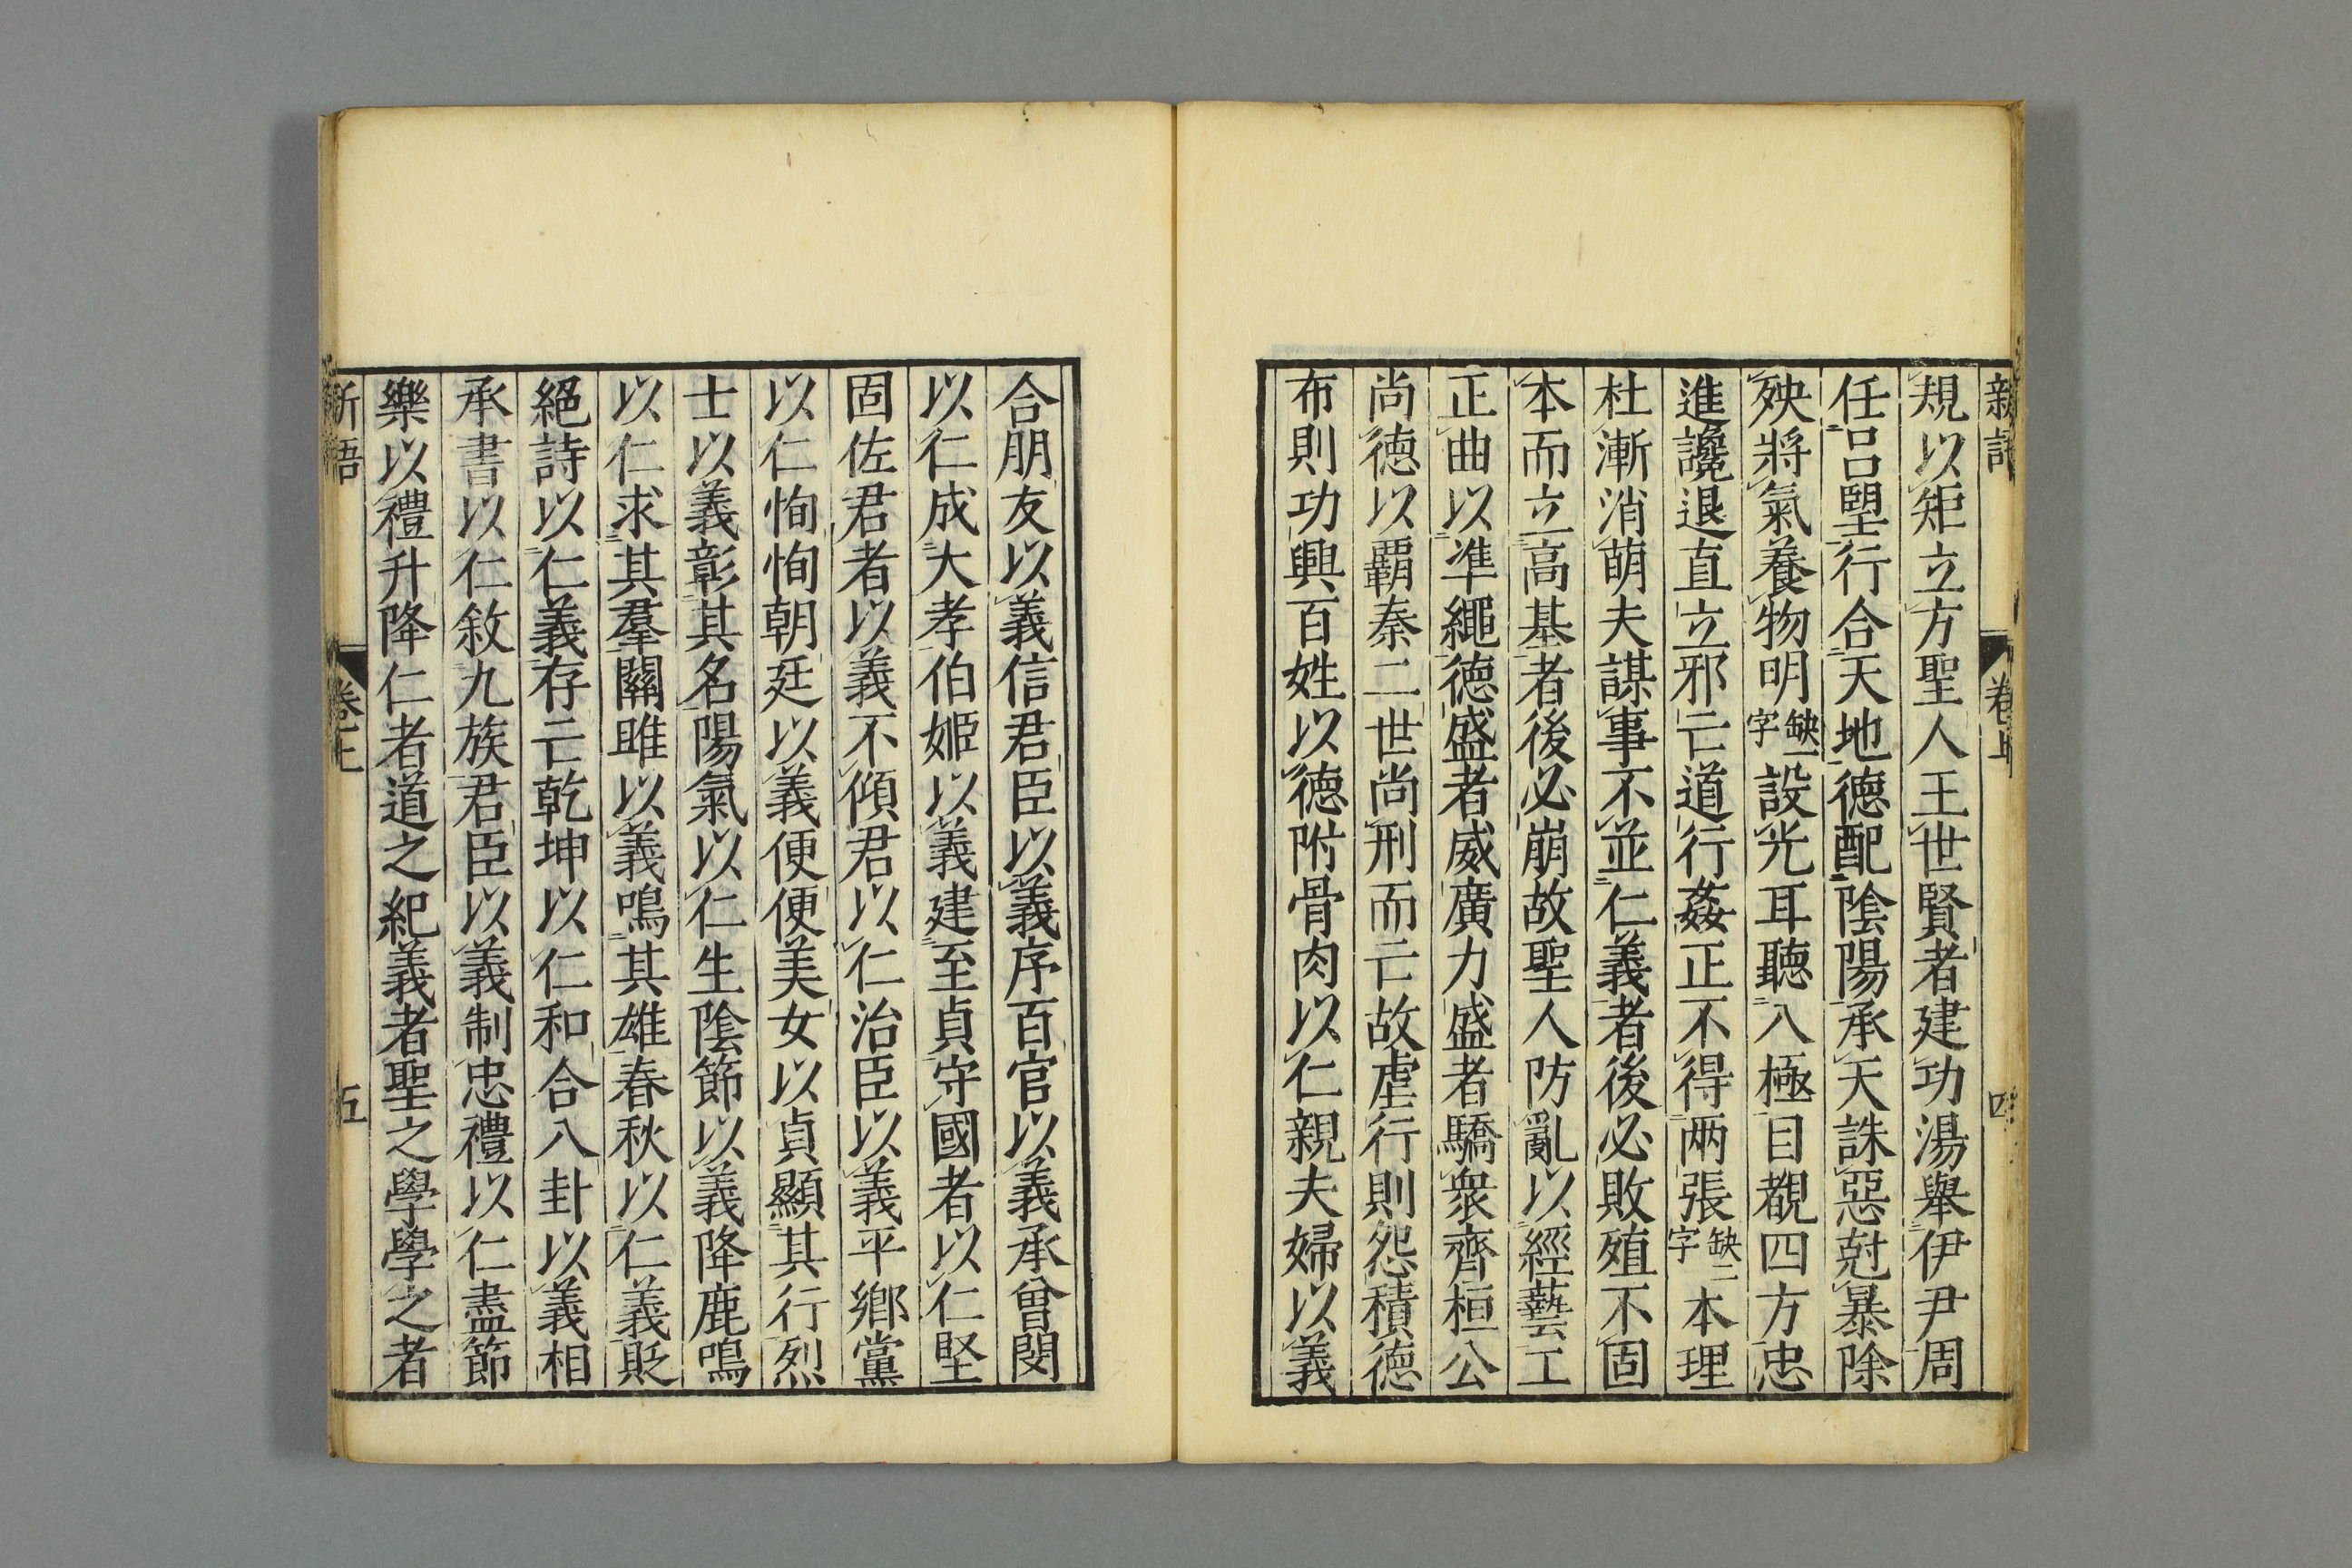 新語 卷上 四
規以矩立方聖人王世賢者建功湯舉伊尹周
任呂望行合天地德配陰陽承天誅惡尅暴除
殃將氣養物明缺一字設光耳聽八極目覩四方忠
進讒退直立邪亡道行姦正不得兩張缺二字本理
杜漸消萌夫謀事不並仁義者後必敗殖不固
本而立高基者後必崩故聖人防亂以經藝工
正曲以準繩德盛者威廣力盛者驕衆齊桓公
尚德以霸秦二世尚刑而亡故虐行則怨積德
布則功興百姓以德附骨肉以仁親夫婦以義
合朋友以義信君臣以義序百官以義承曾閔
以仁成大孝伯姬以義建至貞守國者以仁堅
固佐君者以義不傾君以仁治臣以義平鄉黨
以仁恂恂朝廷以義便便美女以貞顯其行烈
士以義彰其名陽氣以仁生陰節以義降鹿鳴
以仁求其羣關雎以義鳴其雄春秋以仁義貶
絕詩以仁義存亡乾坤以仁和合八卦以義相
承書以仁敘九族君臣以義制忠禮以仁盡節
樂以禮升降仁者道之紀義者聖之學學之者
新語 卷上 五